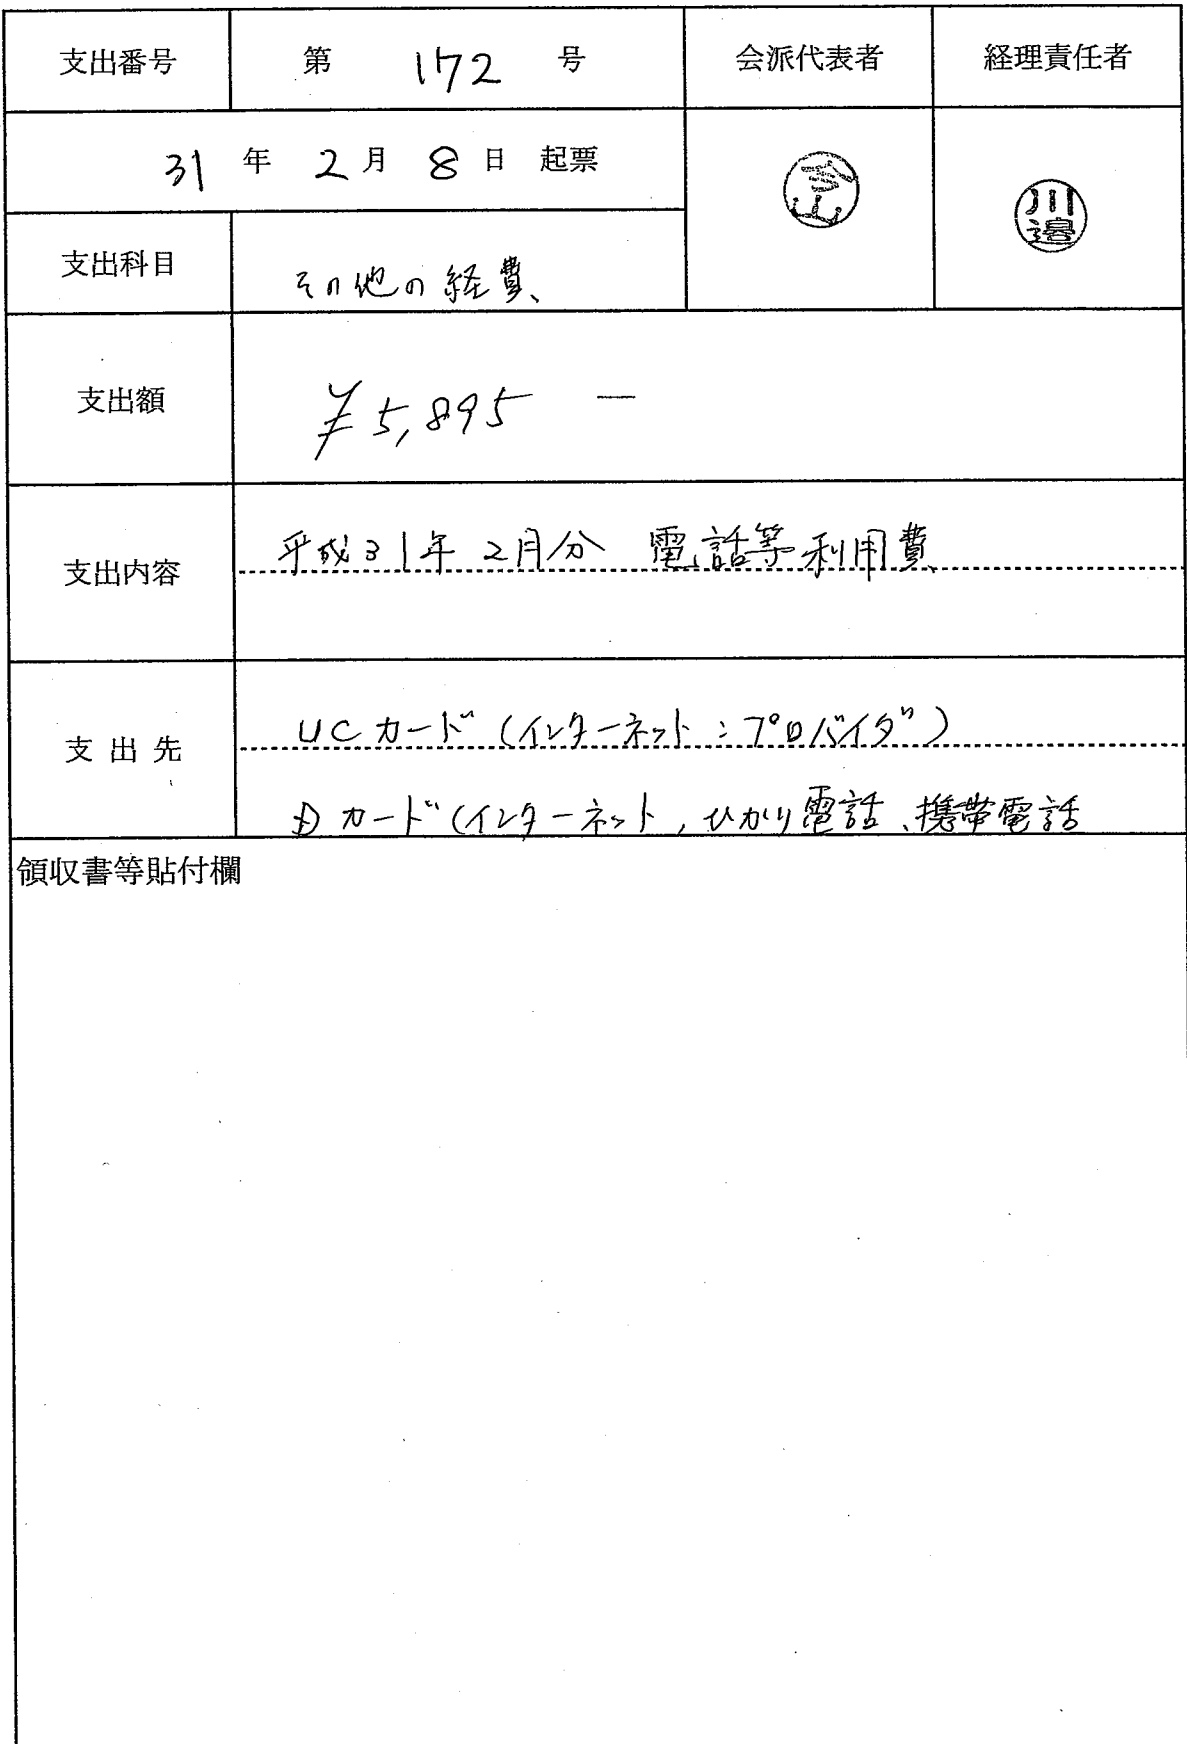 支出番号 第 172 号 会派代表者 経理責任者
31 年 2 月 8 日 起票
今山
川邉
支出科目 その他の経費
支出額 ¥5,895 ―
支出内容 平成31年 2月分 電話等利用費
支出先 UCカード(インターネット:プロバイダ)
dカード(インターネット,ひかり電話、携帯電話
領収書等貼付欄